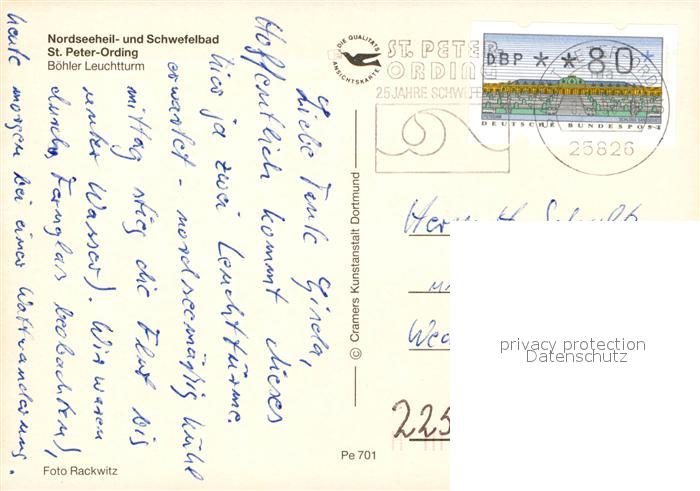 Nordseeheil- und Schwefelbad
St. Peter-Ording
Böhler Leuchtturm
DIE QUALITÄTS
ANSICHTSKARTE
ST. PETER-
ORDING
25 JAHRE SCHWEFE
DBP * * 80 *
DEUTSCHE BUNDESPOST
25826
Liebe Tante Ginda,
Hoffentlich kommt dieses
hier ja zwei Leuchttürme.
erwartet - nordseemäßig kühl
mittag stieg die Flut bis
unter Wasser). Wir waren
durchs Fernglas beobachten),
heute morgen bei einer Wattwanderung.
© Cramers Kunstanstalt Dortmund
Herrn H.
We
225
privacy protection
Datenschutz
Pe 701
Foto Rackwitz